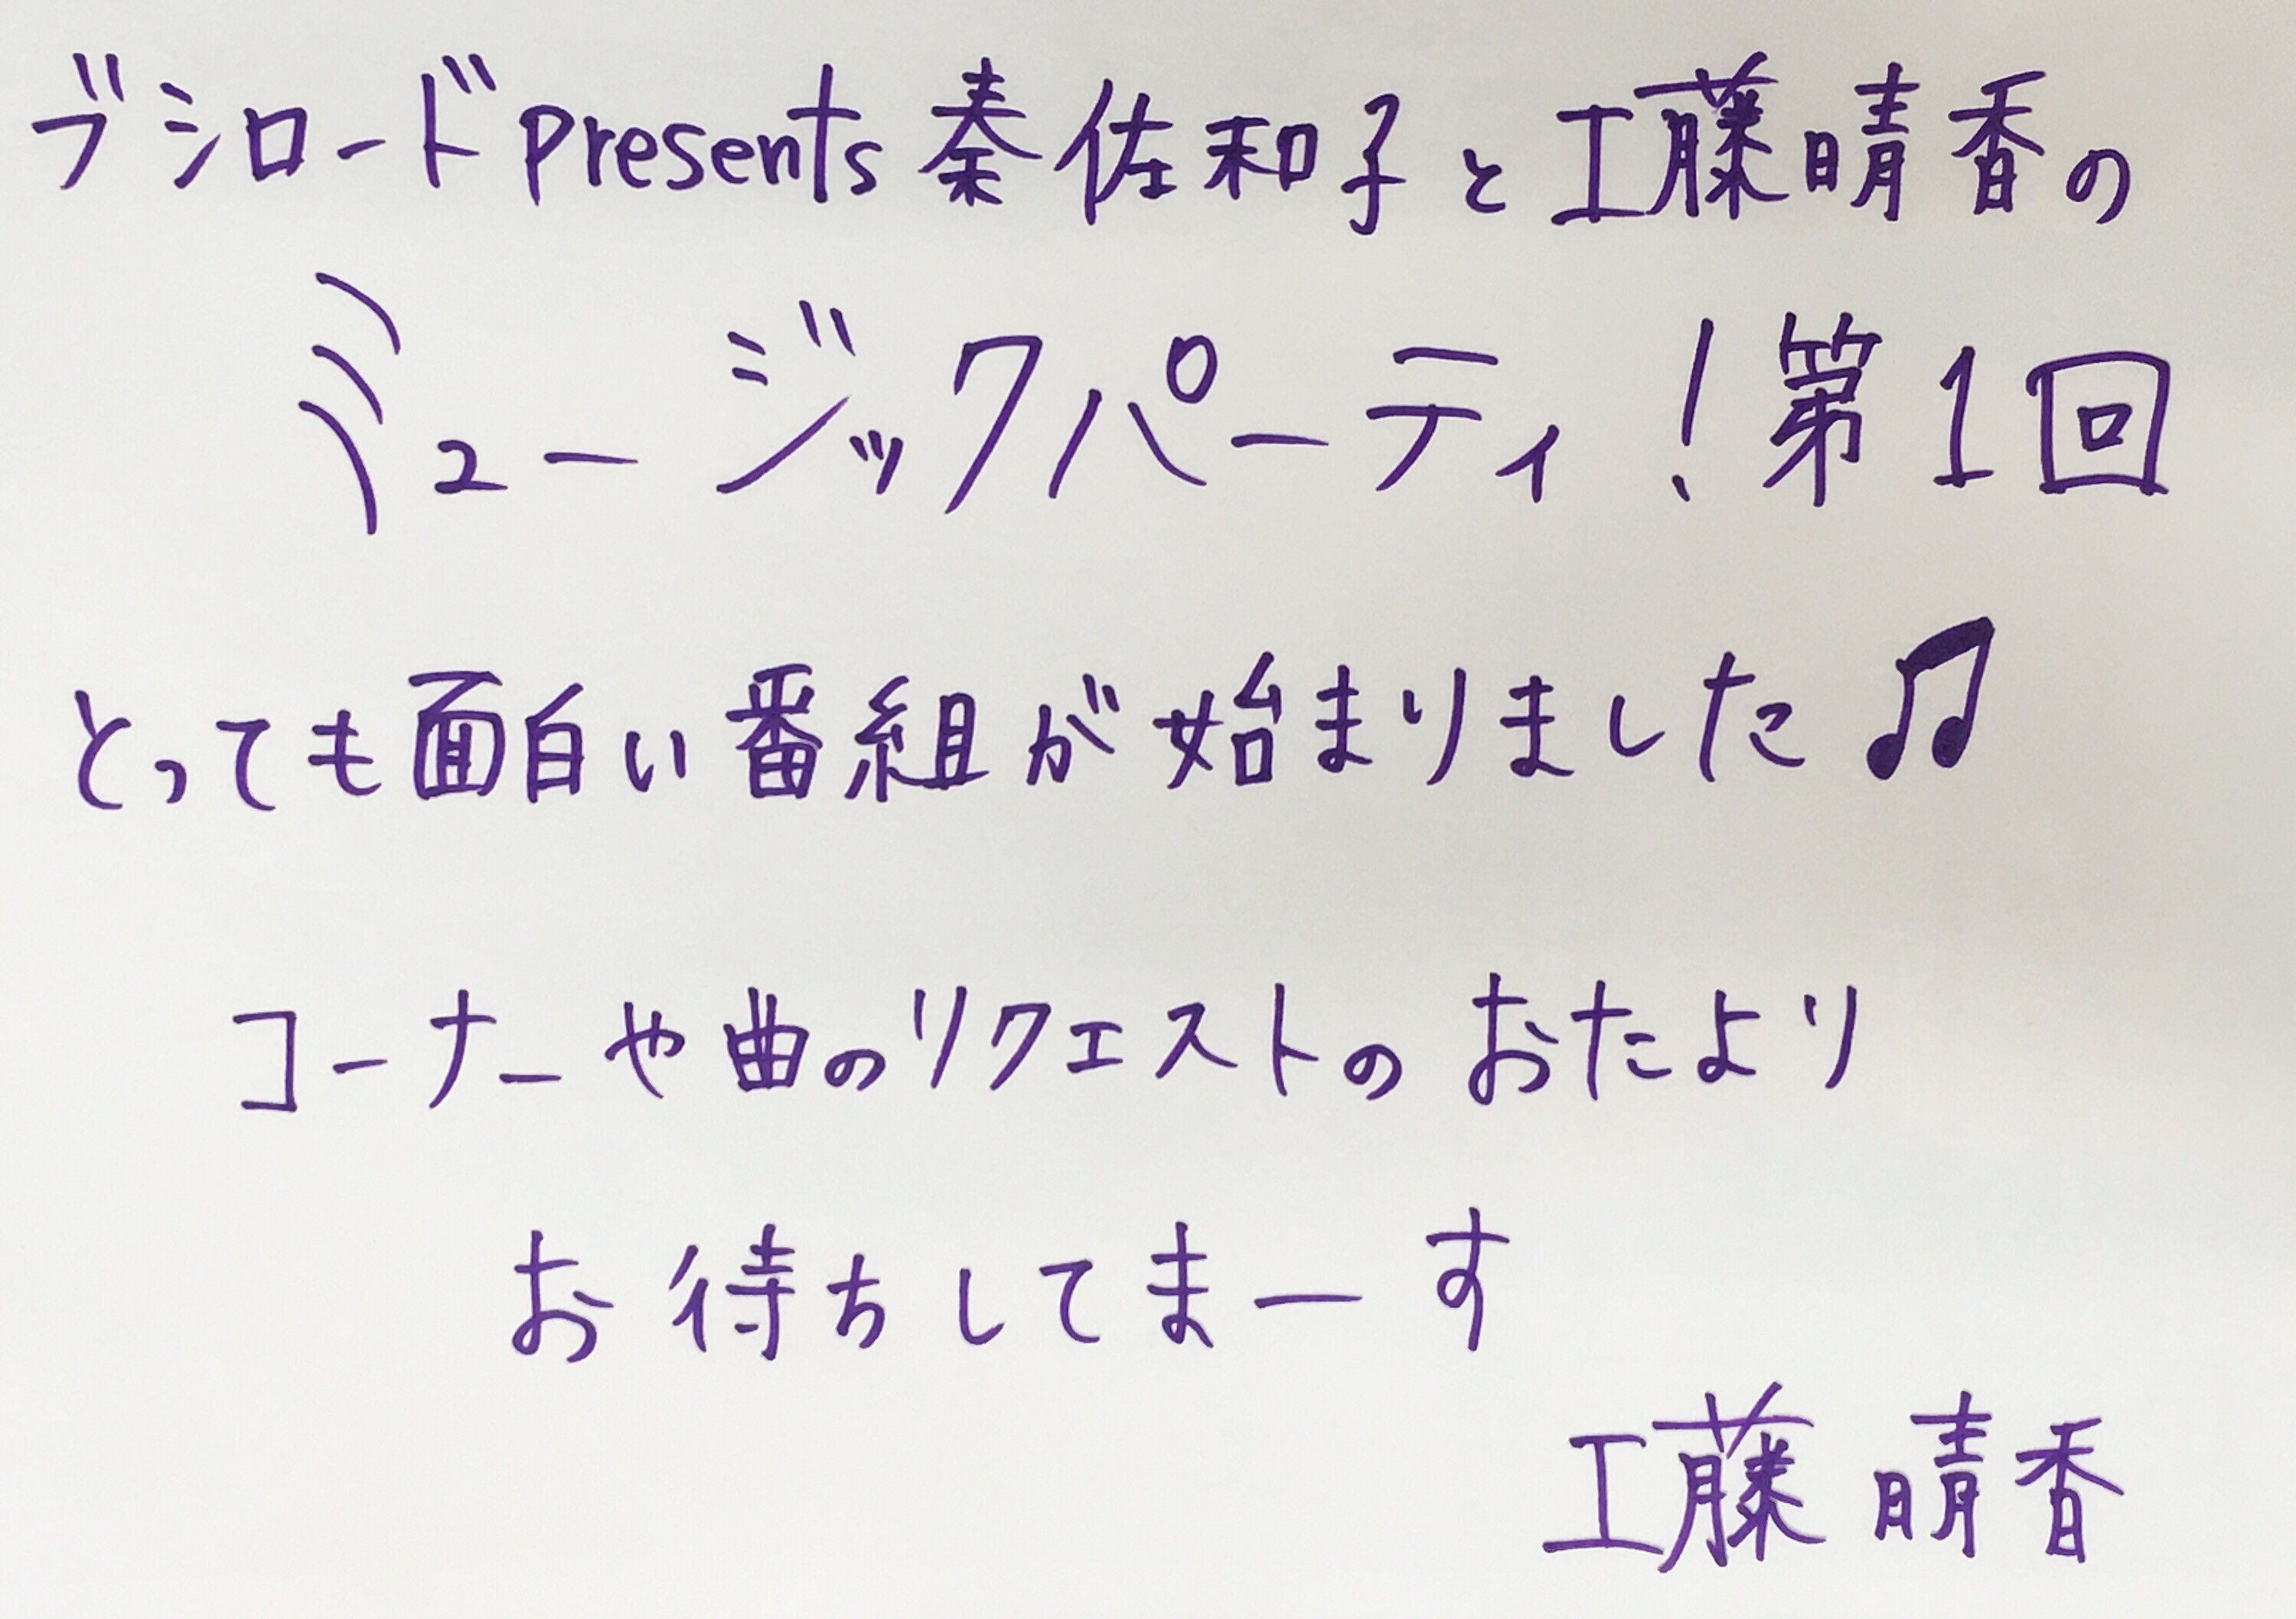 ブシロードpresents秦佐和子と工藤晴香の
ミュージックパーティ!第1回
とっても面白い番組が始まりました♫
コーナーや曲のリクエストのおたより
お待ちしてまーす
工藤晴香